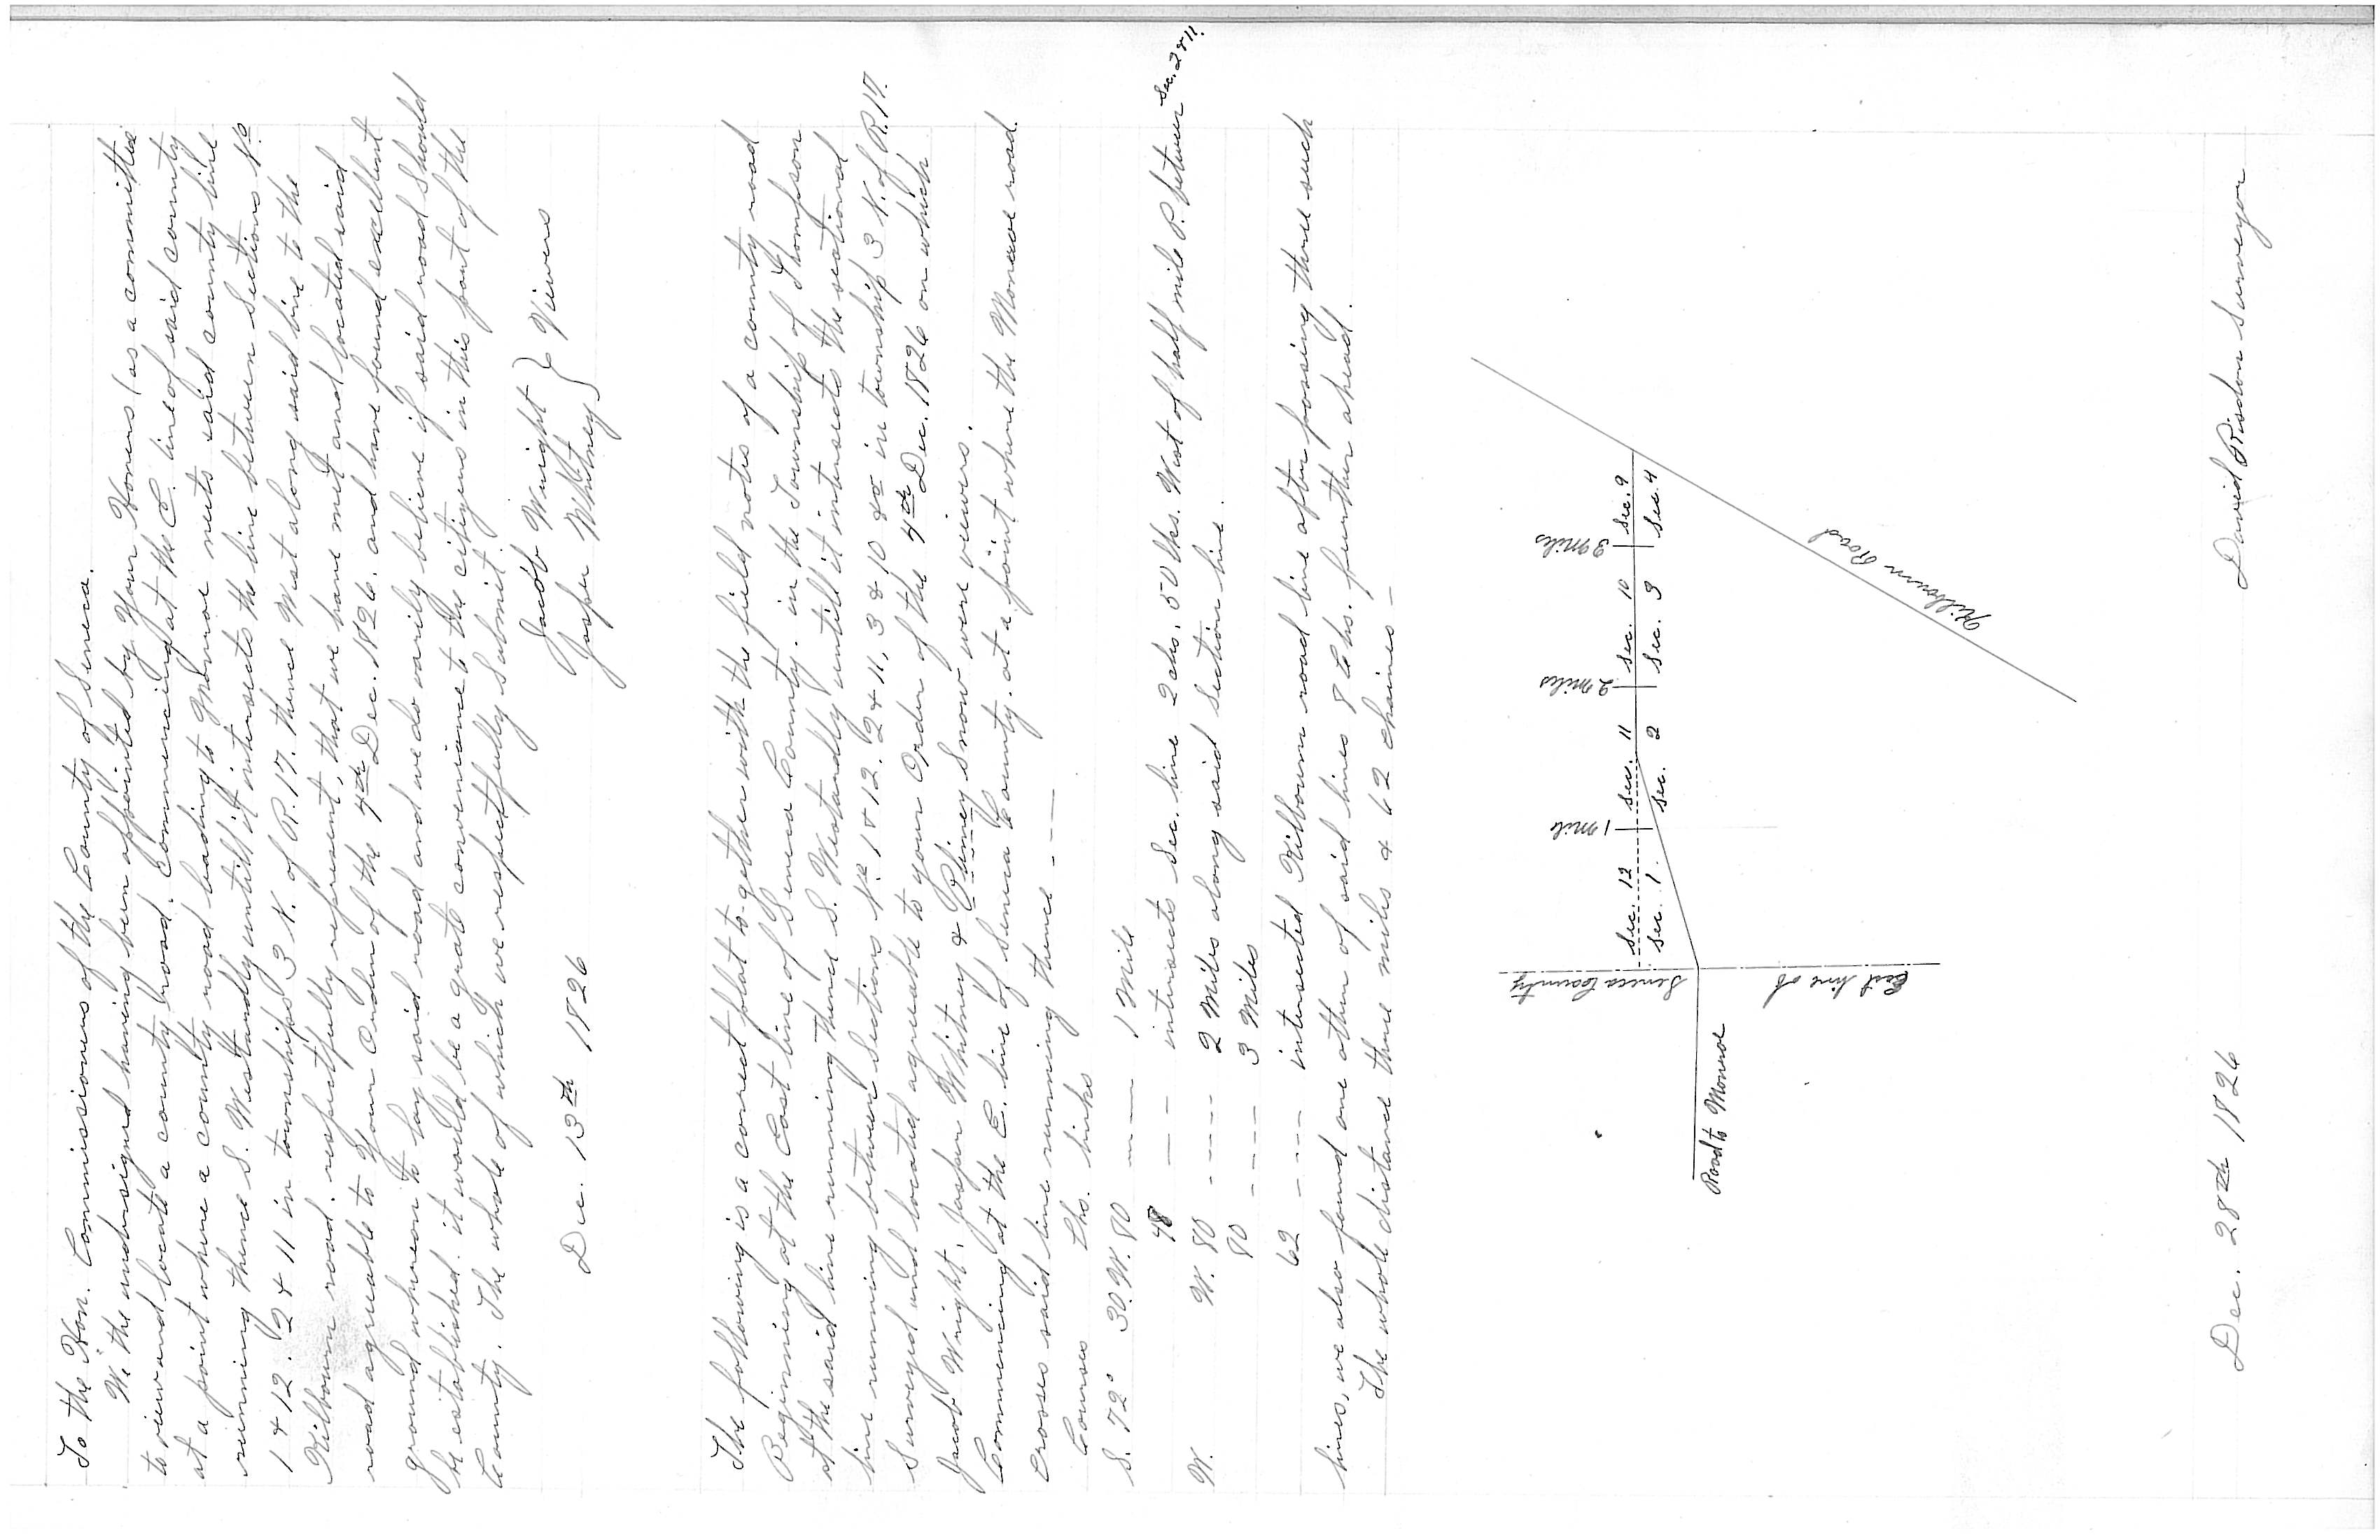 To the Hon. Commissioners of the County of Seneca.
We the undersigned having been appointed by Your Honers (as a committee
to view and locate a county road. Commencing at the E. line of said county
at a point where a county road leading to Monroe meets said county line
running thence S. Westwardly untill it intersects the line between Sections No
1 & 12. 2 & 11 in township 3 N. of R. 17. thence West along said line to the
Kilbourn road. respectfully represent, that we have met and located said
road agreeable to Your Order of the 4th Dec. 1826. and have found excellent
ground whereon to lay said road and we do varily believe if said road should
be established. it would be a grate convenience to the citizens in this part of the
County. The whole of which we respectfully submit.
Jacob Wright
Jasper Whitney } Viewers
Dec. 13th 1826
The following is a correct plat to-gether with the field notes of a county road
Beginning at the East line of Seneca County. in the Township of Thompson
at the said line running thence S. Westwardly untill it intersects the sectional
line running between Sections No 1 & 12. 2 & 11, 3 & 10 &c in township 3 N. of R. 17.
Surveyed and located agreeable to your Order of the 4th Dec. 1826 on which
Jacob Wright. Jasper Whitney & Pliney Snow were viewers.
Commencing at the E. line of Seneca County. at a point where the Monroe road
crosses said line running thence ---
Courses Chs. links
S. 72° 30. W. 80 --- 1 Mile
48 --- intersects Sec. line 2 chs. 50 lks. West of half mile P. between Sec. 2 & 11.
W. W. 80 ---- 2 Miles along said section line.
80 ---- 3 Miles
62 ---- intersected Kilbourn road line after passing three such
lines, we also found one other of said lines 8 chs. further ahead.
The whole distance three miles & 62 chaines -
1 mile
2 miles
3 miles
Sec. 12 Sec. 11 Sec. 10 Sec. 9
Sec. 1 Sec. 2 Sec. 3 Sec. 4
Seneca County
East line of
Road to Monroe
Kilbourn Road
Dec. 28th 1826 David Risdon Surveyor